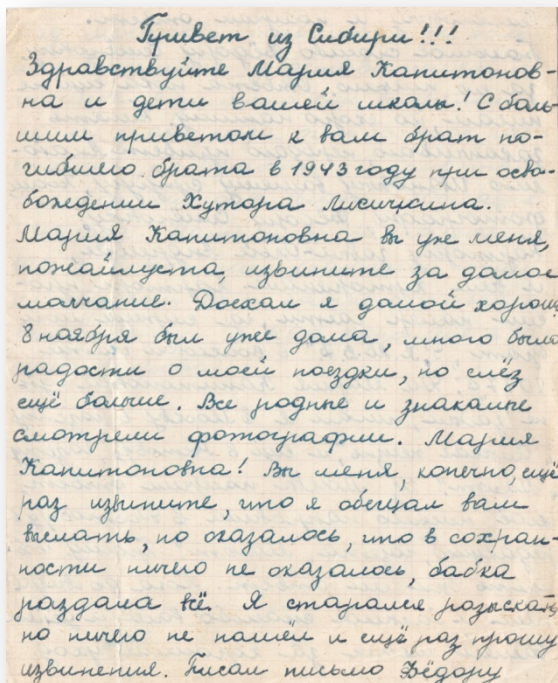 Привет из Сибири!!!
Здравствуйте Мария Капитонов-
на и дети вашей школы! С боль-
шим приветом к вам брат по-
гибшего брата в 1943 году при осво-
бождении Хутора Лисичкина.
Мария Капитоновна вы уже меня,
пожайлуста, извините за долгое
молчание. Доехал я домой хорошо
8 ноября был уже дома, много было
радости о моей поездки, но слёз
ещё больше. Все родные и знакомые
смотрели фотографии. Мария
Капитоновна! Вы меня, конечно, ещё
раз извините, что я обещал вам
выслать, но оказалось, что в сохран-
ности ничего не оказалось, бабка
раздала всё. Я старался разыскать,
но ничего не нашёл и ещё раз прошу
извинения. Писал письмо Фёдору